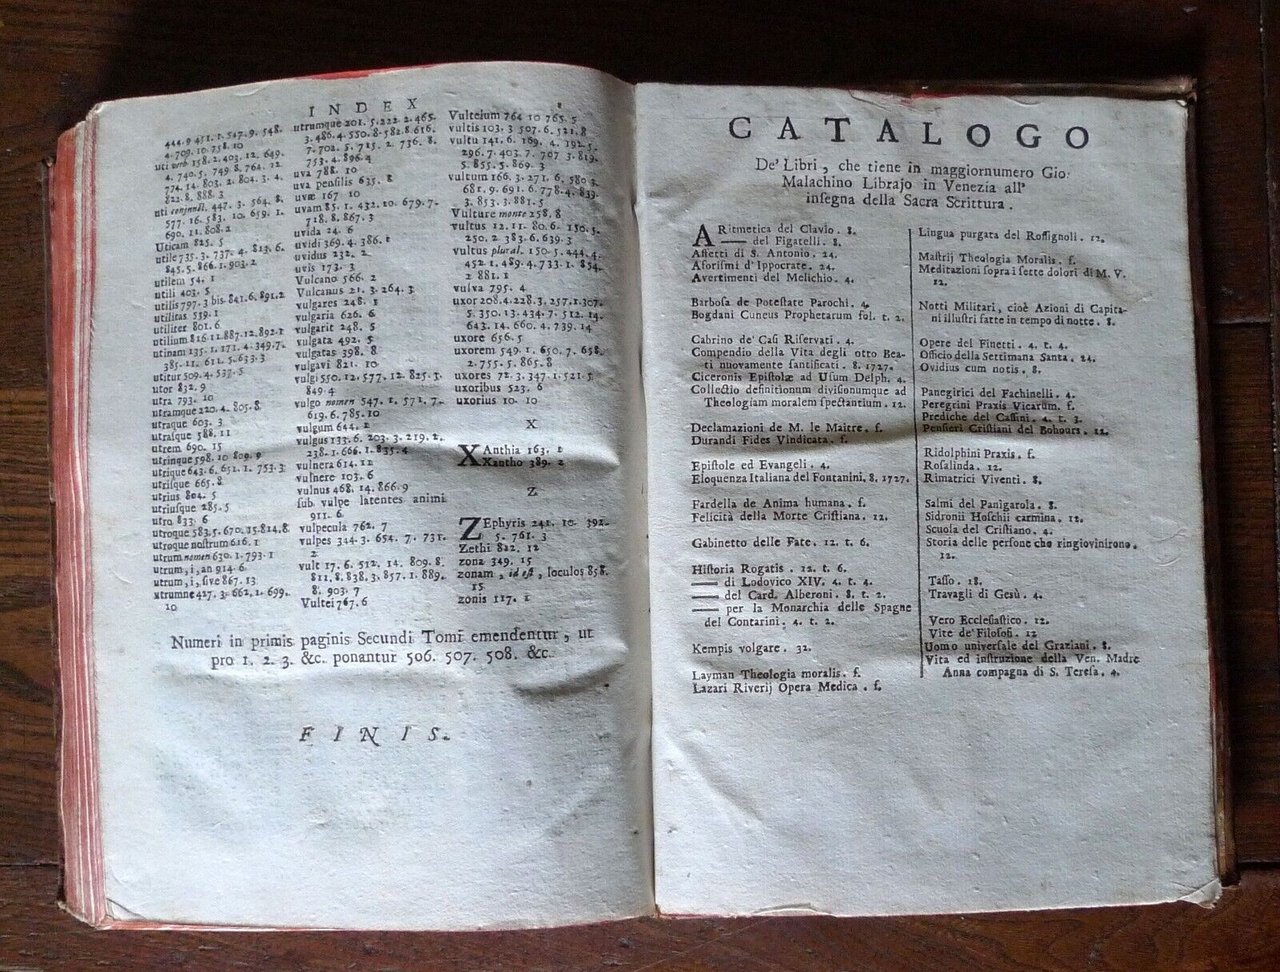 INDEX
444.9 451.1. 547.9. 548.
4. 709. 10. 758. 10
uti verb 158. 2. 403. 12. 649.
4. 740. 5. 749. 8. 764. 12
774. 14. 803. 2. 804. 3. 4.
822. 8. 888. 3
uti conjunct. 447. 3. 564. 8.
577. 16. 583. 10. 659. 1.
690. 11. 808. 2
Uticam 825. 5
utile 735. 3. 737. 4. 813. 6.
845. 5. 866. 1. 903. 2
utilem 54. 1
utili 403. 5
utilis 797. 3 bis. 841. 6. 891. 2
utilitas 559. 1
utiliter 801. 6
utilium 816. 11. 887. 12. 892. 1
utinam 135. 1. 171. 4. 349. 7.
385. 11. 611. 5. 633. 3
utitur 509. 4. 537. 5
utor 832. 9
utra 793. 10
utramque 220. 4. 805. 8
utraque 603. 3
utrasque 588. 11
utrem 690. 15
utrinque 598. 10. 809. 9
utrique 643. 6. 651. 1. 753. 3
utrisque 665. 8
utrius 804. 5
utriusque 285. 5
utro 833. 6
utroque 583. 5. 670. 15. 814. 8.
utroque nostrum 616. 1
utrum nomen 630. 1. 793. 1
utrum, i, an 914. 6
utrum, i, sive 867. 13
utrumne 427. 3. 662. 1. 699.
10
utrumque 201. 5. 222. 2. 465.
3. 486. 4. 550. 8. 582. 8 616.
7. 702. 5. 715. 2. 736. 8.
753. 4. 896. 4
uva 788. 10
uva pensilis 635. 8
uvæ 167. 10
uvam 85. 1. 432. 10. 679. 7.
718. 8. 867. 3
uvida 24. 6
uvidi 369. 4. 386. 1
uvidus 232. 2
uvis 173. 3
Vulcano 566. 2
Vulcanus 21. 3. 264. 3
vulgares 248. 1
vulgaria 626. 6
vulgarit 248. 5
vulgata 492. 5
vulgatas 398. 8
vulgavi 821. 10
vulgi 550. 12. 577. 12. 825. 3.
849. 4
vulgo nomen 547. 1. 571. 7.
619. 6. 785. 10
vulgum 644. 2
vulgus 133. 6. 203. 3. 219. 2.
238. 1. 666. 1. 835. 4
vulnera 614. 12
vulnere 103. 6
vulnus 468. 14. 866. 9
sub vulpe latentes animi
911. 6
vulpecula 762. 7
vulpes 344. 3. 654. 7. 731.
2
vult 17. 6. 512. 14. 809. 8.
811. 8. 838. 3. 857. 1. 889.
8. 903. 7
Vultei 767. 6
Vulteium 764 10 765. 5
vultis 103. 3 507. 6. 521. 8
vultu 141. 6. 169. 4. 192. 5.
296. 7. 403. 7. 707 3. 819.
5. 855. 5. 869. 3
vultum 166. 3. 271. 6. 580. 3.
681. 9. 691. 6. 778. 4. 839.
3. 853. 3. 881. 5
Vulture monte 258. 8
vultus 12. 11. 80. 6. 150. 5.
250. 2. 383. 6. 639. 3
vultus plural. 150. 5. 444. 4.
452. 1. 489. 4. 733. 1. 854.
2 881. 2
vulva 795. 4
uxor 208. 4. 228. 3. 257. 1. 307.
5. 350. 13. 434. 7. 512. 14.
643. 14. 660. 4. 739. 14
uxore 656. 5
uxorem 549. 1. 650. 7. 658.
2. 755. 5. 865. 8
uxores 72. 3. 347. 1. 521. 5
uxoribus 523. 6
uxorius 10. 10
X
XAnthia 163. 1
Xantho 389. 2
Z
ZEphyris 241. 10. 392.
5. 761. 3
Zethi 822. 12
zona 349. 15
zonam, id est, loculos 858.
15
zonis 117. 1
Numeri in primis paginis Secundi Tomi emendentur, ut
pro 1. 2. 3. &c. ponantur 506. 507. 508. &c.
FINIS.
CATALOGO
De' Libri, che tiene in maggiornumero Gio:
Malachino Librajo in Venezia all'
insegna della Sacra Scrittura.
ARitmetica del Clavio. 8.
—— del Figatelli. 8.
Affetti di S. Antonio. 24.
Aforismi d'Ippocrate. 24.
Avertimenti del Melichio. 4.
Birbosa de Potestate Parochi. 4.
Bogdani Cuneus Prophetarum fol. t. 2.
Cabrino de' Casi Riservati. 4.
Compendio della Vita degli otto Bea-
ti nuovamente santificati. 8. 1727.
Ciceronis Epistolæ ad Usum Delph. 4.
Collectio definitionum divisionumque ad
Theologiam moralem spectantium. 12.
Declamazioni de M. le Maitre. f.
Durandi Fides Vindicata. f.
Epistole ed Evangeli. 4.
Eloquenza Italiana del Fontanini. 8. 1727.
Fardella de Anima humana. f.
Felicità della Morte Cristiana. 12.
Gabinetto delle Fate. 12. t. 6.
Historia Rogatis. 12. t. 6.
—— di Lodovico XIV. 4. t. 4.
—— del Card. Alberoni. 8. t. 2.
—— per la Monarchia delle Spagne
del Contarini. 4. t. 2.
Kempis volgare. 32.
Layman Theologia moralis. f.
Lazari Riverij Opera Medica. f.
Lingua purgata del Rossignoli. 12.
Mastrij Theologia Moralis. f.
Meditazioni sopra i sette dolori di M. V.
12.
Notti Militari, cioè Azioni di Capita-
ni illustri fatte in tempo di notte. 8.
Opere del Finetti. 4. t. 4.
Officio della Settimana Santa. 24.
Ovidius cum notis. 8.
Panegirici del Fachinelli. 4.
Peregrini Praxis Vicarum. f.
Prediche del Cassini. 4. t. 3.
Pensieri Cristiani del Bohours. 12.
Ridolphini Praxis. f.
Rosalinda. 12.
Rimatrici Viventi. 8.
Salmi del Panigarola. 8.
Sidronii Hoschii carmina. 12.
Scuola del Cristiano. 4.
Storia delle persone che ringiovinirono.
12.
Tasso. 18.
Travagli di Gesù. 4.
Vero Ecclesiastico. 12.
Vite de' Filosofi. 12
Uomo universale del Graziani. 8.
Vita ed instruzione della Ven. Madre
Anna compagna di S. Teresa. 4.